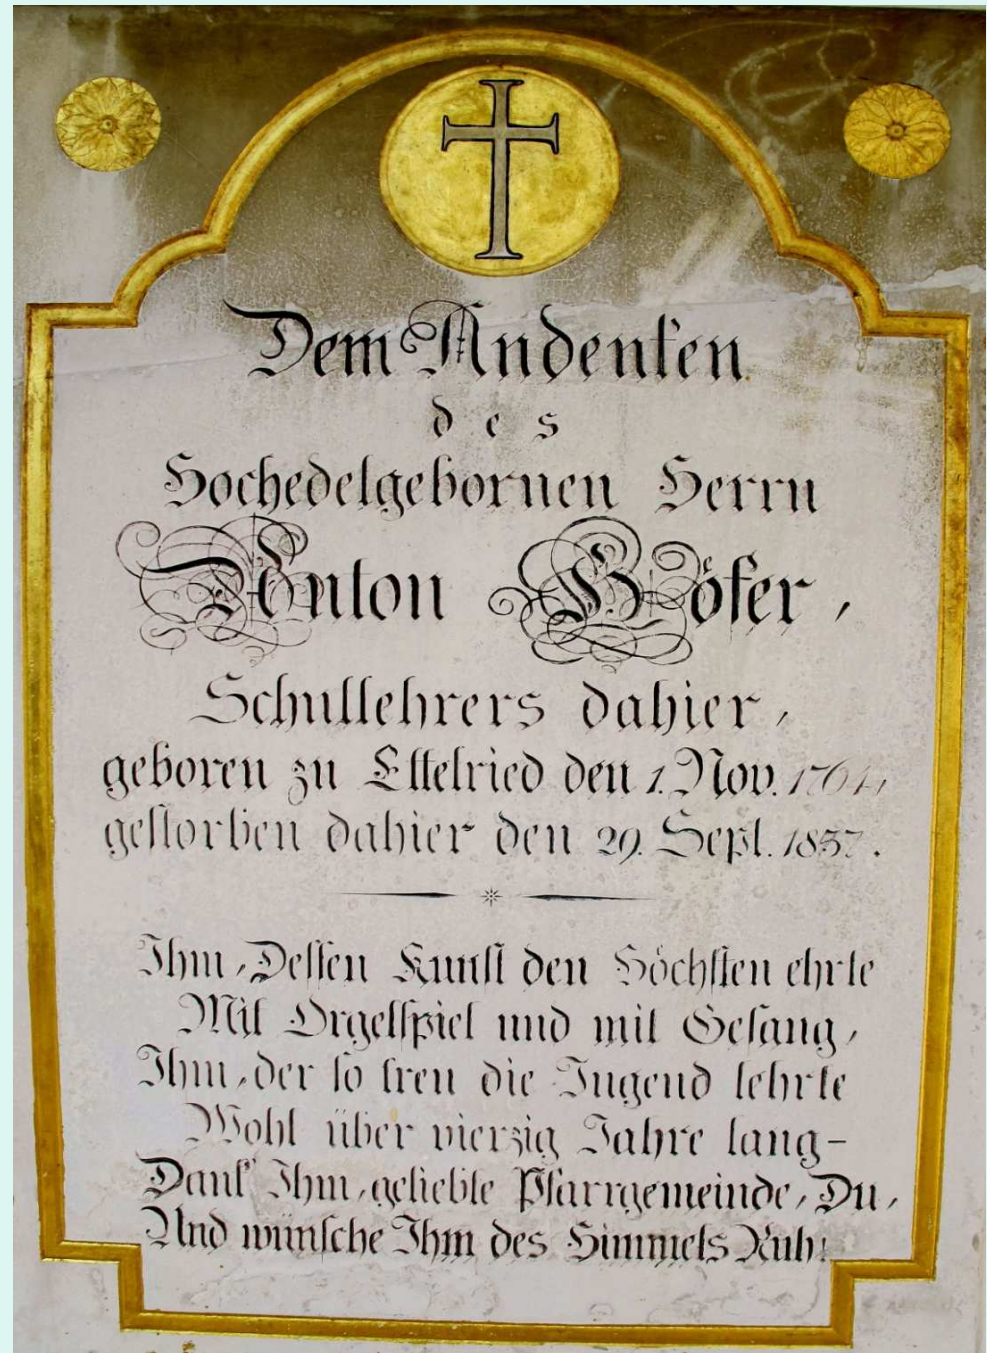 Dem Andenken
des
Hochedelgebornen Herrn
Anton Höfer,
Schullehrers dahier,
geboren zu Ettelried den 1. Nov. 1764,
gestorben dahier den 29. Sept. 1837.
Ihm, Dessen Kunst den Höchsten ehrte
Mit Orgelspiel und mit Gesang,
Ihm, der so treu die Jugend lehrte
Wohl über vierzig Jahre lang–
Dank' Ihm, geliebte Pfarrgemeinde, Du,
Und wünsche Ihm des Himmels Ruh!